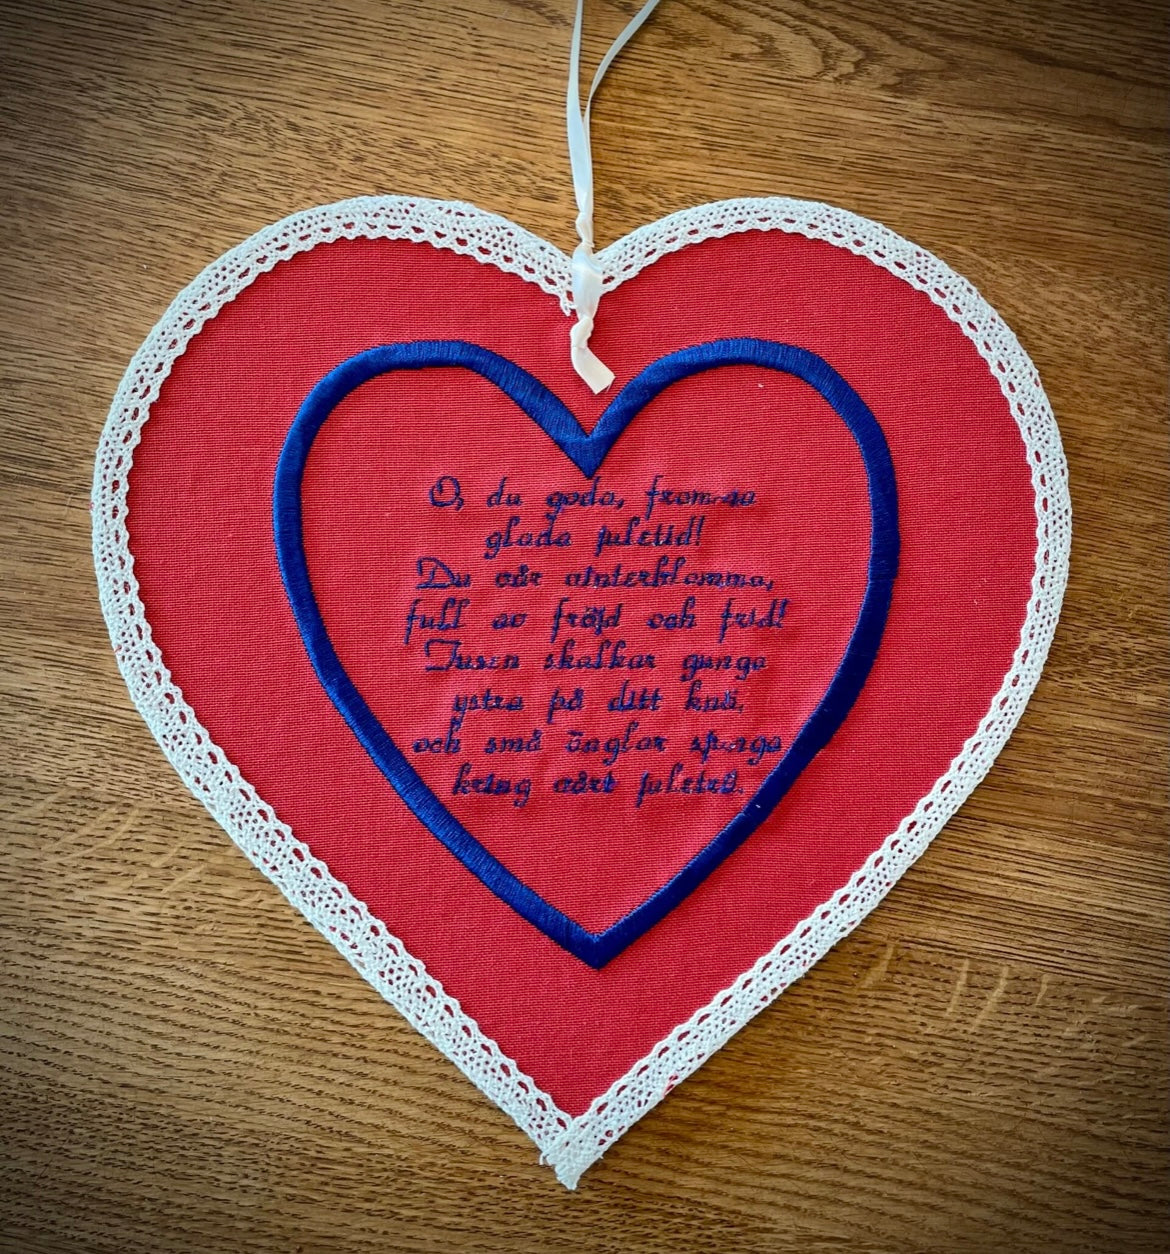 O, du goda, fromma
glada juletid!
Du vår vinterblomma,
full av fröjd och frid!
Tusen skalkar gunga
ystra på ditt knä,
och små änglar sjunga
kring vårt juleträ.